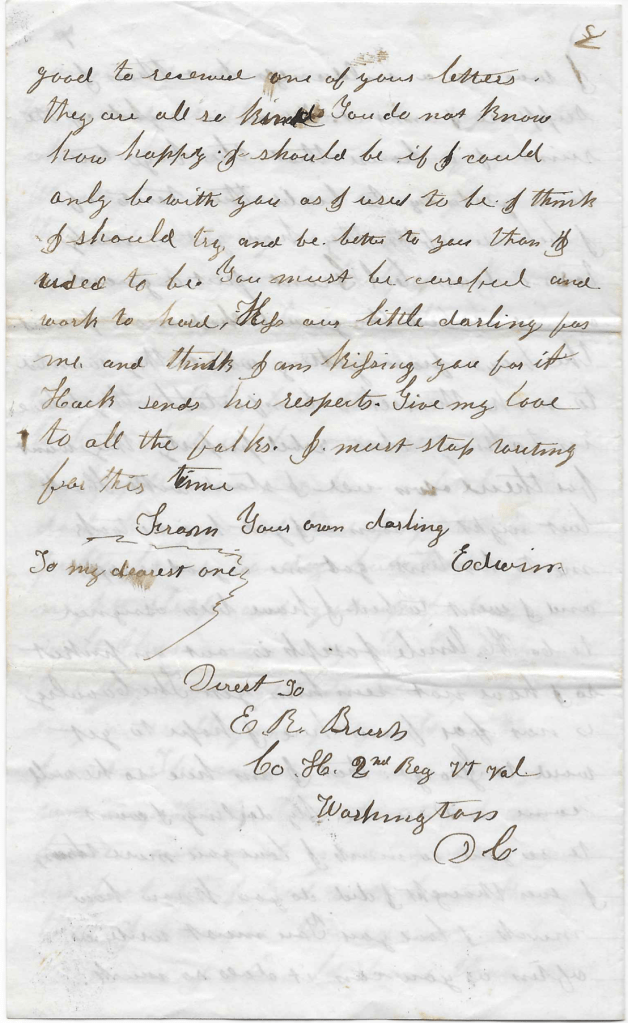 4
good to received one of your letters.
they are all so kind You do not know
how happy I should be if I could
only be with you as I used to be I think
I should try and be better to you than I
used to be You must be careful and
work to hard, Kiss our little darling for
me and think I am Kissing you for it
Hack sends his respects. Give my love
to all the folks. I must stop writing
for this time
From Your own darling
Edwin
To my dearest one
Direct To
E R. Brush
Co. H. 2nd Reg Vt Vol
Washington
D C